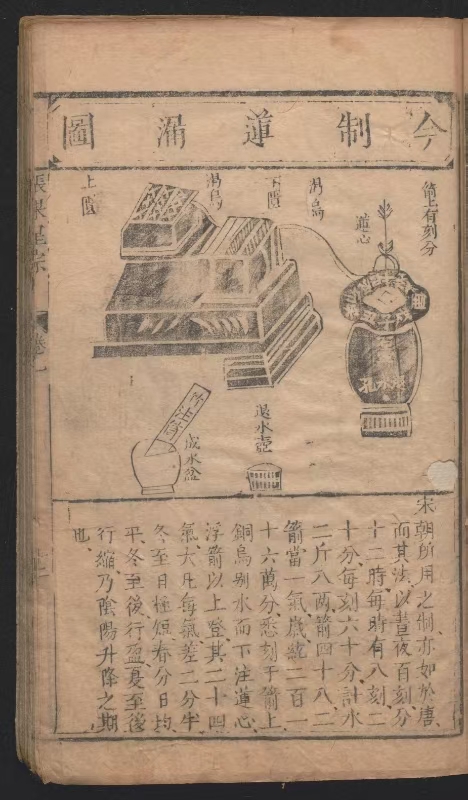 今制蓮漏圖
箭上有刻分
蓮心
渴烏
下匱
渴烏
上匱
竹注筒
成水盆
退水壺
宋朝所用之制亦如於唐
而其法以晝夜百刻分
十二時每時有八刻二
十分每刻六十分計水
二斤八兩箭四十八二
箭當一氣歲統二百一
十六萬分悉刻于箭上
銅烏别水而下注蓮心
浮箭以上登其二十四
氣大凡每氣差二分半
冬至日極短春分日均
平、冬至後行盈夏至後
行縮、乃陰陽升降之期
也、
張果星宗
卷七